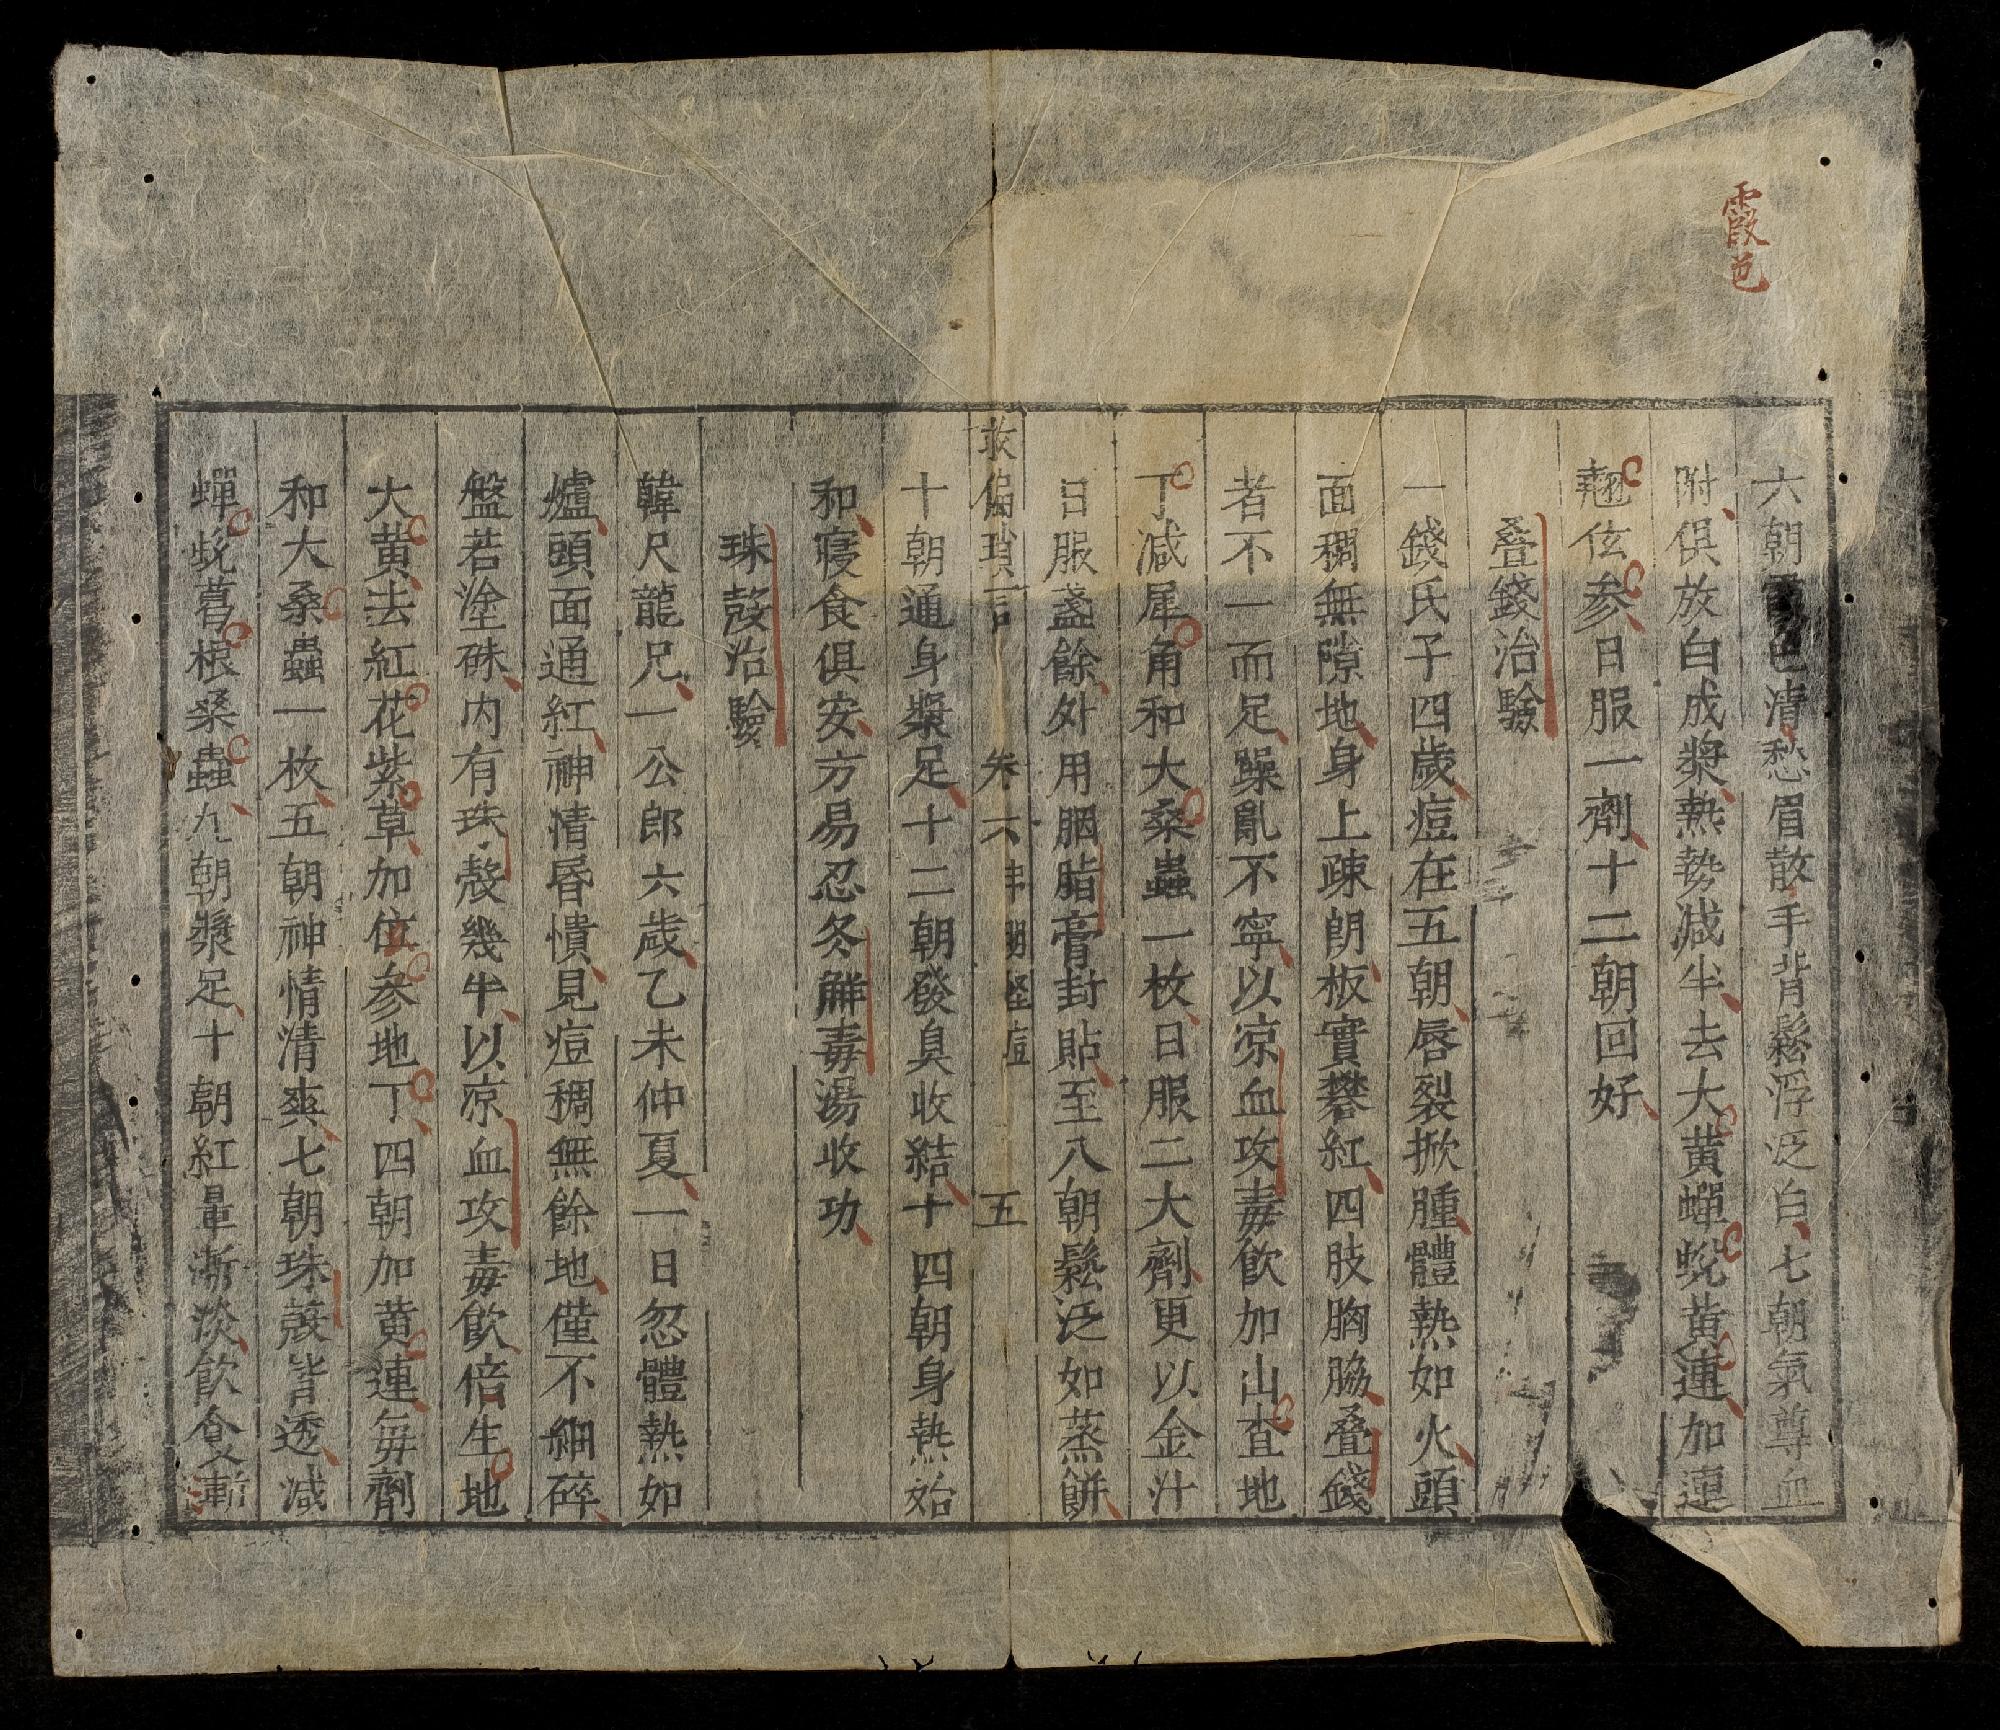 霞邑
六朝霞色清愁眉散手背鬆浮泛白七朝氣尊血
附俱放白成漿熱勢减半去大黃蟬蛻黃連加連
翹伭参日服一劑十二朝回好
叠錢治驗
一錢氏子四歲痘在五朝唇裂掀腫體熱如火頭
面稠無隙地身上疎朗板實礬紅四肢胸脇叠錢
者不一而足躁亂不寧以凉血攻毒飲加山査地
丁减犀角和大桑蟲一枚日服二大劑更以金汁
日服盞餘外用胭脂膏封貼至八朝鬆泛如蒸餅
救偏瑣言 卷六 痘 五
十朝通身漿足十二朝發臭收結十四朝身熱始
和寢食俱安方易忍冬解毒湯收功
珠殼治驗
韓尺龍兄一公郎六歲乙未仲夏一日忽體熱如
爐頭面通紅神情昏憒見痘稠無餘地僅不細碎
盤若塗硃内有珠殼幾半以凉血攻毒飲倍生地
大黄去紅花紫草加伭参地丁四朝加黄連每劑
和大桑蟲一枚五朝神情清爽七朝珠殼皆透减
蟬蛻葛根桑蟲九朝漿足十朝紅暈漸淡飲食漸